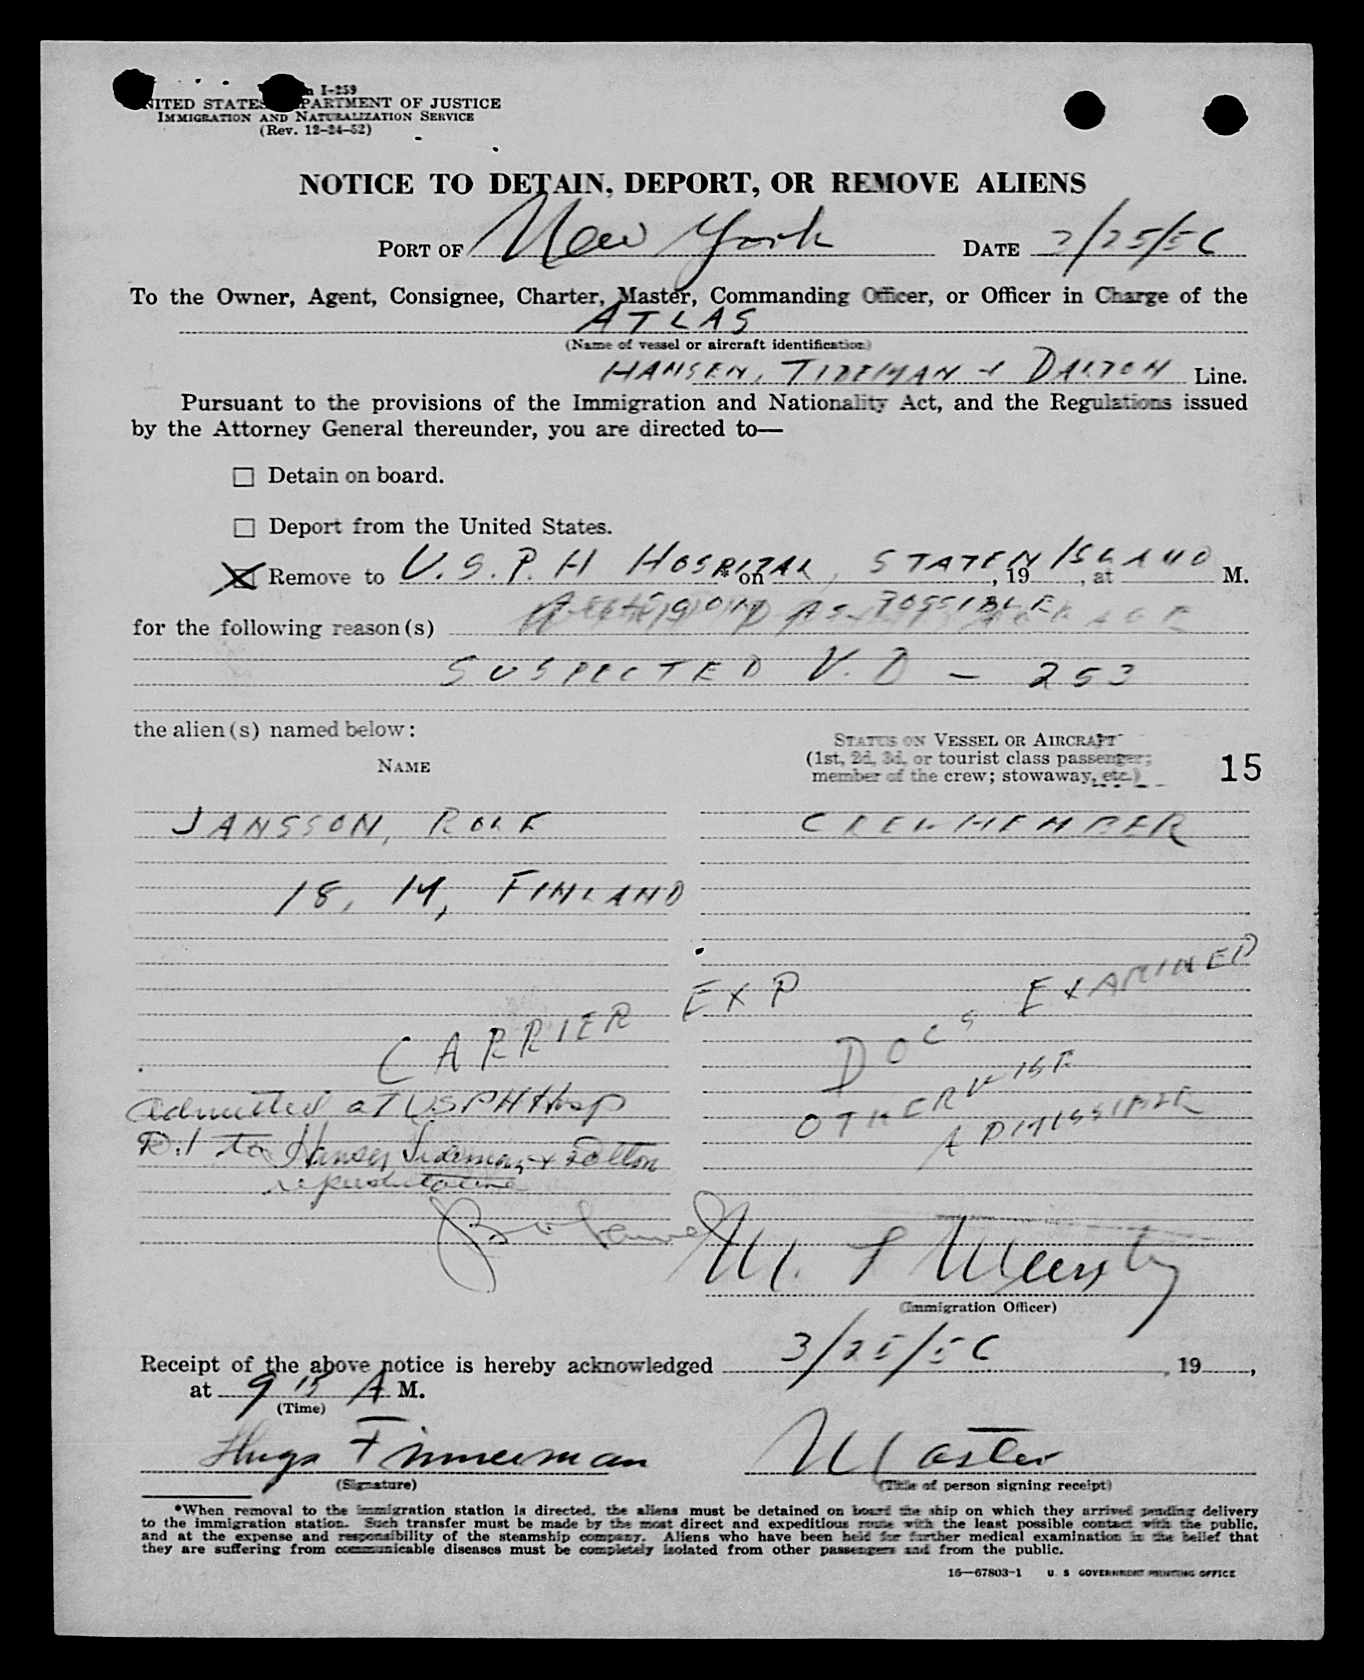 I-259
UNITED STATES DEPARTMENT OF JUSTICE
IMMIGRATION AND NATURALIZATION SERVICE
(Rev. 12-24-52)
NOTICE TO DETAIN, DEPORT, OR REMOVE ALIENS
PORT OF New York DATE 3/25/56
To the Owner, Agent, Consignee, Charter, Master, Commanding Officer, or Officer in Charge of the
ATLAS
(Name of vessel or aircraft identification)
HANSEN, TIDEMAN & DALTON Line.
Pursuant to the provisions of the Immigration and Nationality Act, and the Regulations issued
by the Attorney General thereunder, you are directed to—
☐ Detain on board.
☐ Deport from the United States.
☒ Remove to U.S.P.H HOSPITAL, STATEN ISLAND * on , 19 , at M.
AS SOON AS POSSIBLE
for the following reason(s)
SUSPECTED V.D - 253
the alien(s) named below:
STATUS ON VESSEL OR AIRCRAFT
(1st, 2d, 3d, or tourist class passenger;
member of the crew; stowaway, etc.)
NAME
15
JANSSON, ROLF CREWMEMBER
18, M, FINLAND
CARRIER EXP
DOCS EXAMINED
OTHERWISE
ADMISSIBLE
Admitted at USPH Hosp
Del to Hansen Tideman & Dalton
representative
M. F
(Immigration Officer)
Receipt of the above notice is hereby acknowledged 3/25/56 , 19 ,
at 9 15 A M.
(Time)
Hugo Timmerman Master
(Signature) (Title of person signing receipt)
*When removal to the immigration station is directed, the aliens must be detained on board the ship on which they arrived pending delivery
to the immigration station. Such transfer must be made by the most direct and expeditious route with the least possible contact with the public,
and at the expense and responsibility of the steamship company. Aliens who have been held for further medical examination in the belief that
they are suffering from communicable diseases must be completely isolated from other passengers and from the public.
16—67803-1 U. S. GOVERNMENT PRINTING OFFICE